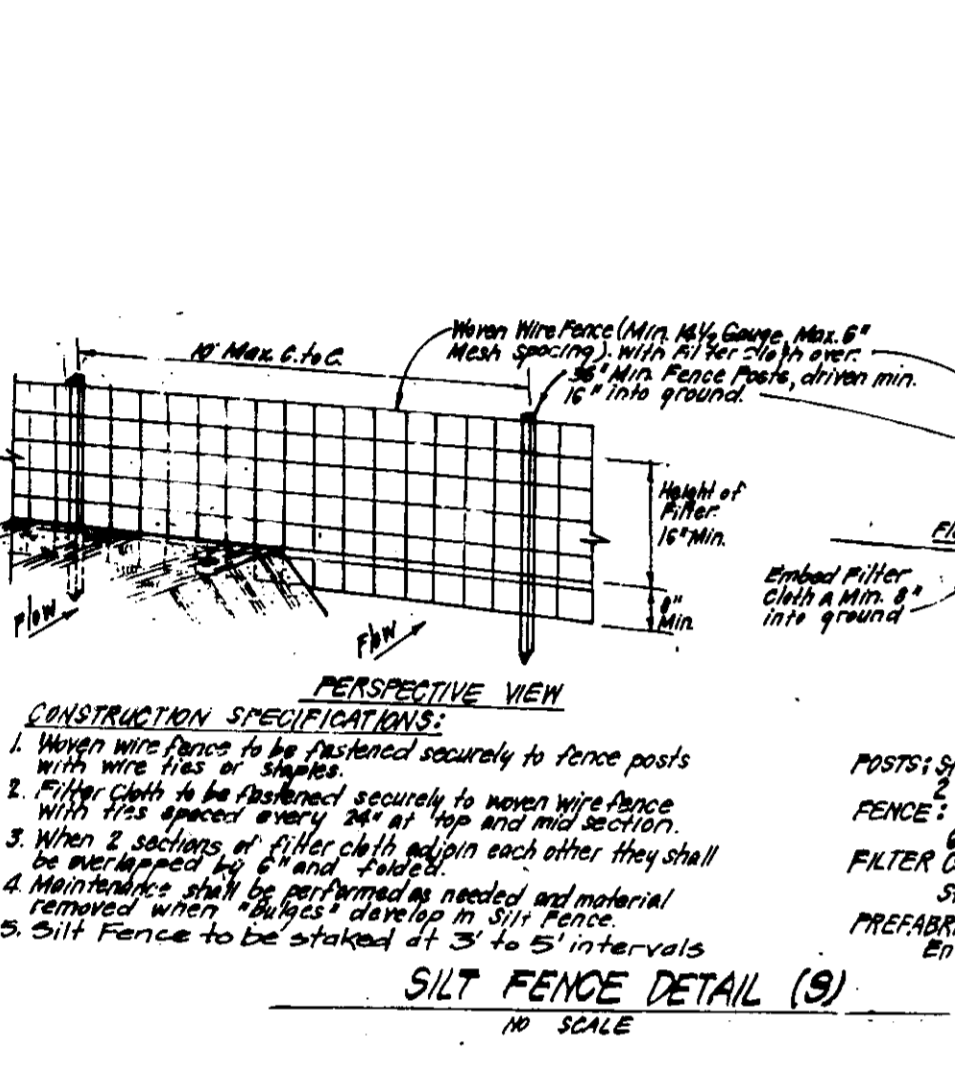 10' Max. C. to C.
Woven Wire Fence (Min. 14½ Gauge, Max. 6"
Mesh spacing) with Filter cloth over.
36" Min. Fence Posts, driven min.
16" into ground.
Height of
Filter.
16" Min.
8"
Min
Embed Filter
Cloth a Min. 8"
into ground
Flow
Flow
PERSPECTIVE VIEW
CONSTRUCTION SPECIFICATIONS:
1. Woven wire fence to be fastened securely to fence posts
with wire ties or staples.
2. Filter Cloth to be fastened securely to woven wire fence
with ties spaced every 24" at top and mid section.
3. When 2 sections of filter cloth adjoin each other they shall
be overlapped by 6" and folded.
4. Maintenance shall be performed as needed and material
removed when "Bulges" develop in Silt Fence.
5. Silt Fence to be staked at 3' to 5' intervals
POSTS: St
2
FENCE:
FILTER C
PREFABRI
En
SILT FENCE DETAIL (S)
NO SCALE